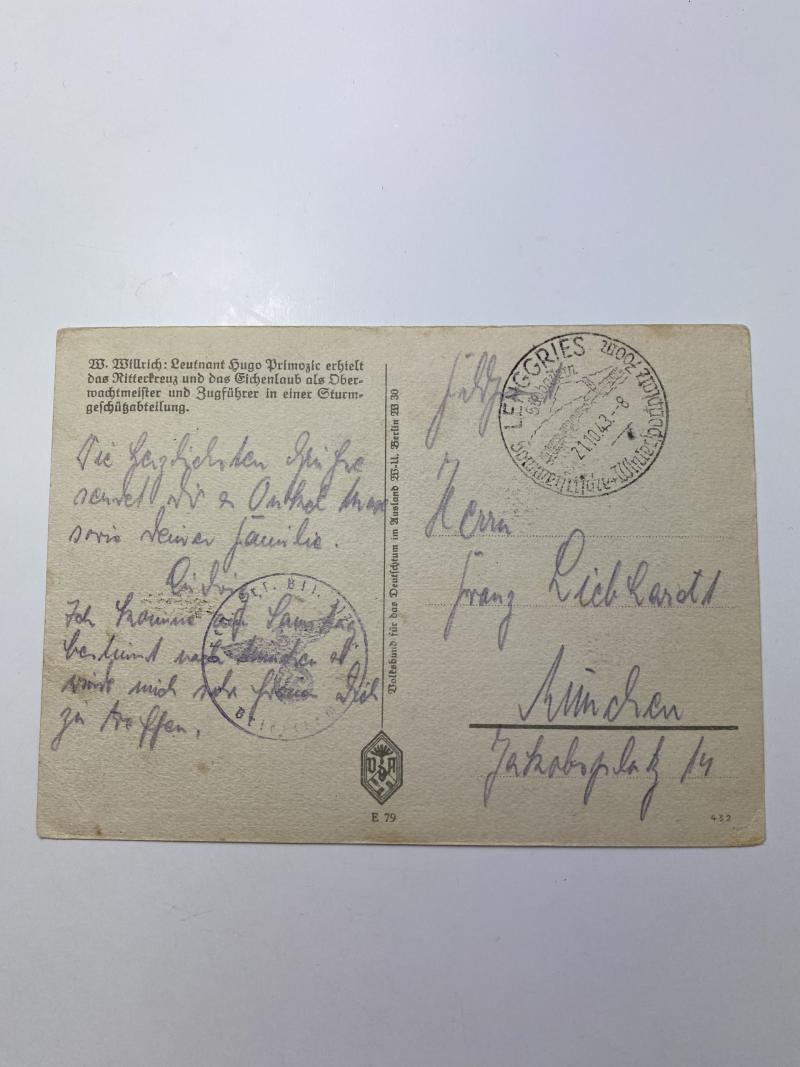 W. Willrich: Leutnant Hugo Primozic erhielt
das Ritterkreuz und das Eichenlaub als Ober-
wachtmeister und Zugführer in einer Sturm-
geschützabteilung.
Die herzlichsten Grüße
sendet Dir Onkel
sowie Deiner Familie.
Ich komme Samstag
bestimmt nach München
würde mich sehr freuen Dich
zu treffen.
Volksbund für das Deutschtum im Ausland W-U. Berlin W 30
VDA
E 79
LENGGRIES
Oberbayern
21.10.43.-8
Sommerfrische + Wintersportplatz 700m
Herrn
Franz Liebhardt
München
Jakobsplatz 14
432